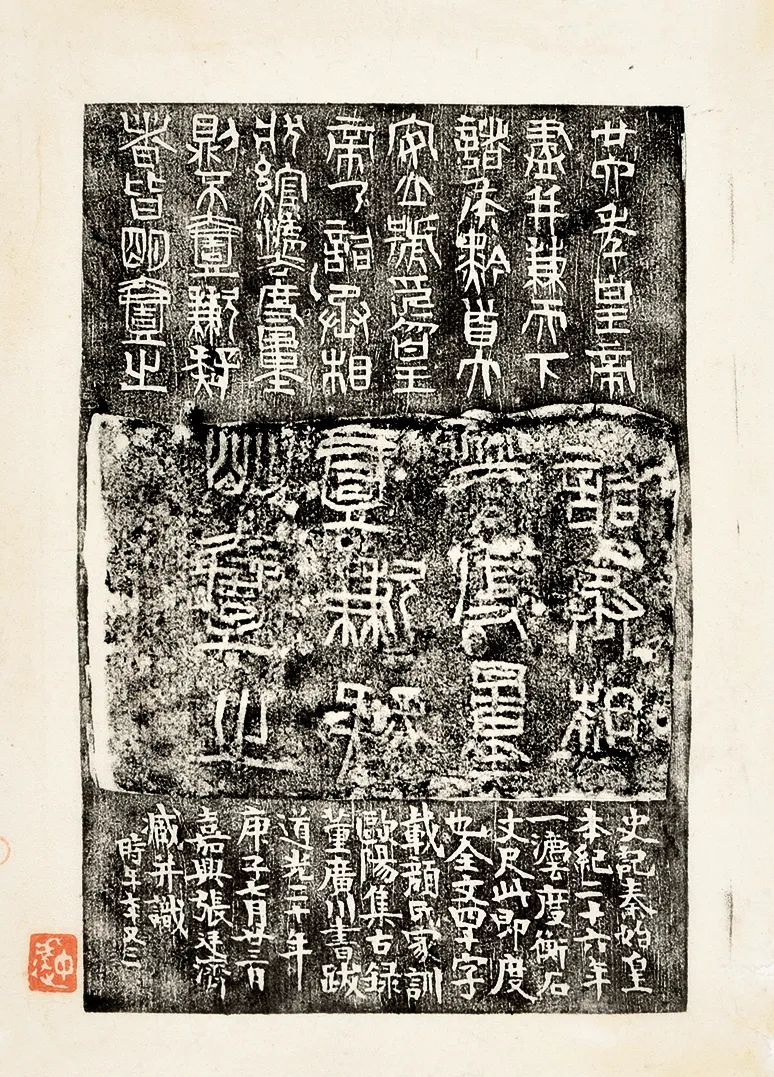 廿六年皇帝
盡并兼天下
諸侯黔首大
安立號為皇
帝乃詔丞相
狀綰灋度量
則不壹歉疑
者皆明壹之
詔丞相
灋度量
壹歉疑
明壹之
史記秦始皇
本紀二十六年
一灋度衡石
丈尺此即度
也全文四十字
載顏氏家訓
歐陽集古錄
董廣川書跋
道光二十年
庚子七月廿二日
嘉興張廷濟
藏并識
時年七十又三